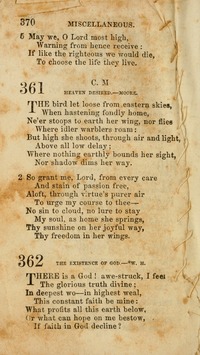 370 MISCELLANEOUS.
5 May we, O Lord most high,
Warning from hence receive:
If like the righteous we would die,
To choose the life they live.
361 C. M
HEAVEN DESIRED.—MOORE.
THE bird let loose from eastern skies,
When hastening fondly home,
Ne'er stoops to earth her wing, nor flies
Where idler warblers roam:
But high she shoots, through air and light,
Above all low delay;
Where nothing earthly bounds her sight,
Nor shadow dims her way.
2 So grant me, Lord, from every care
And stain of passion free,
Aloft, through virtue's purer air
To urge my course to thee—
No sin to cloud, no lure to stay
My soul, as home she springs,
Thy sunshine on her joyful way,
Thy freedom in her wings.
362 THE EXISTENCE OF GOD.—W. M.
THERE is a God! awe-struck, I feel
The glorious truth divine;
In deepest wo—in highest weal,
This constant faith be mine:
What profits all this earth below,
Or what can hope on me bestow,
If faith in God decline?